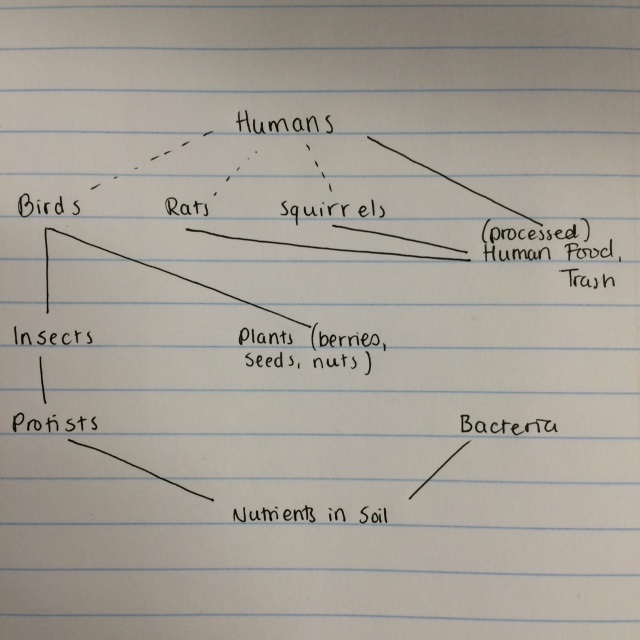 Humans
Birds
Rats
Squirrels
(processed)
Human Food,
Trash
Insects
Plants (berries,
seeds, nuts)
Protists
Bacteria
Nutrients in Soil